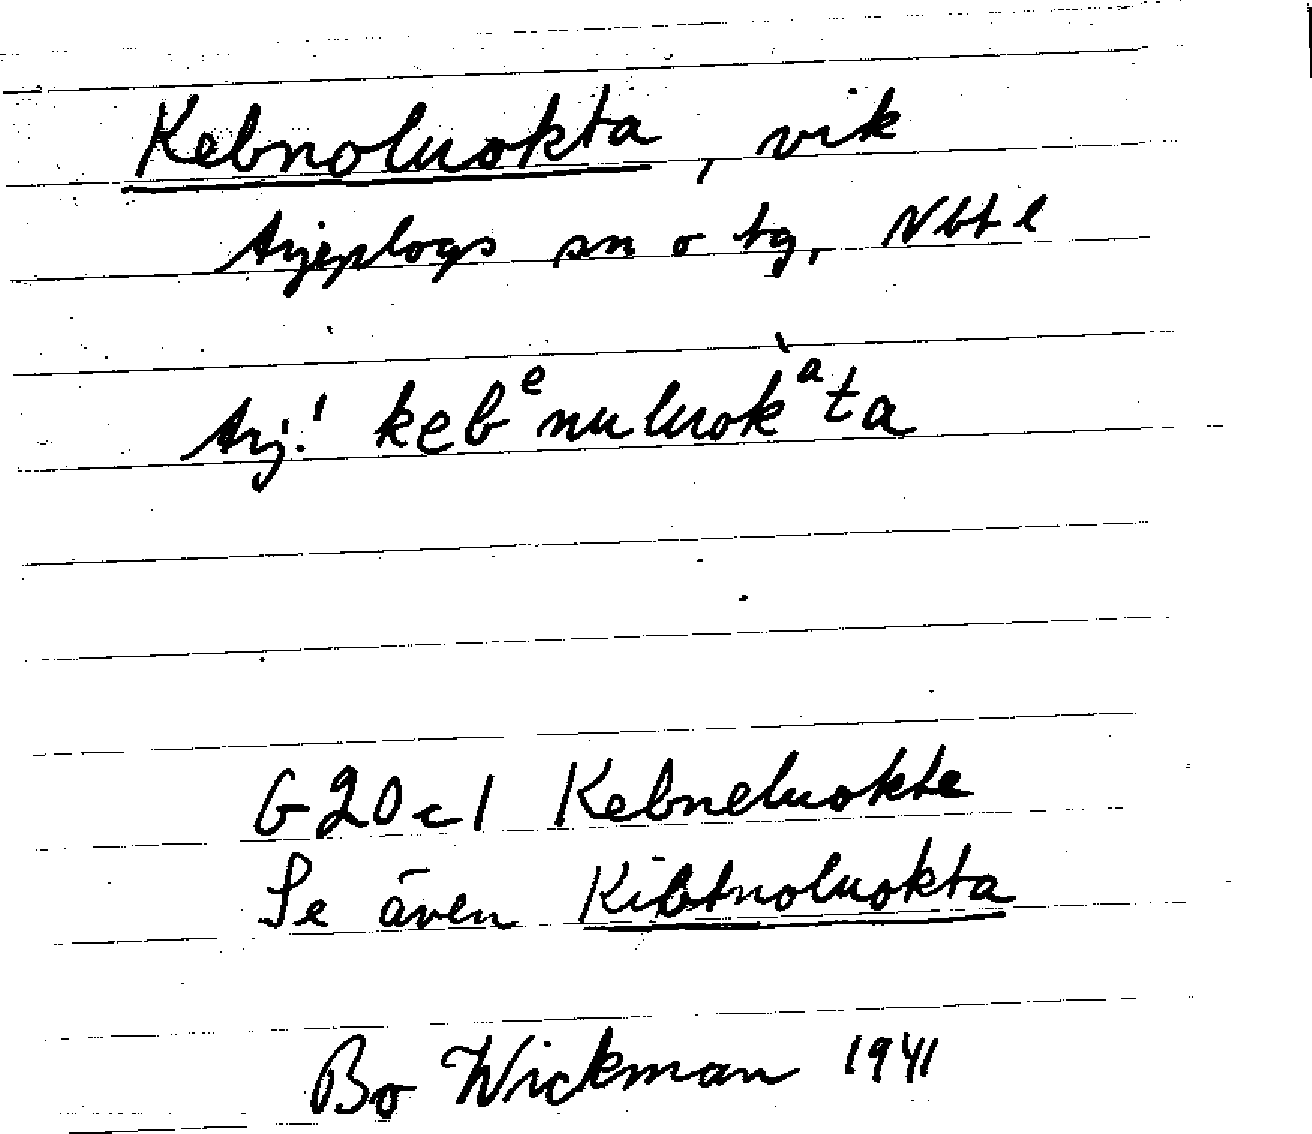 Kebnoluokta, vik
Arjeplogs sn o tg, Nbtl
Arj.! kebᵉnuluokᵃ̀ta
G20c1 Kebneluokte
Se även Kibtnoluokta
Bo Wickman 1941